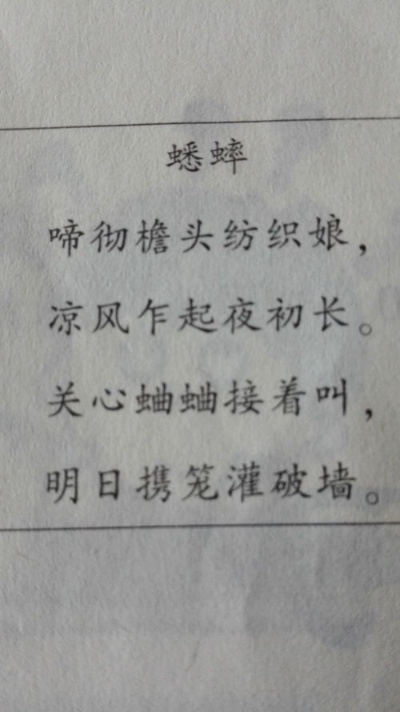 蟋蟀
啼彻檐头纺织娘，
凉风乍起夜初长。
关心蛐蛐接着叫，
明日携笼灌破墙。